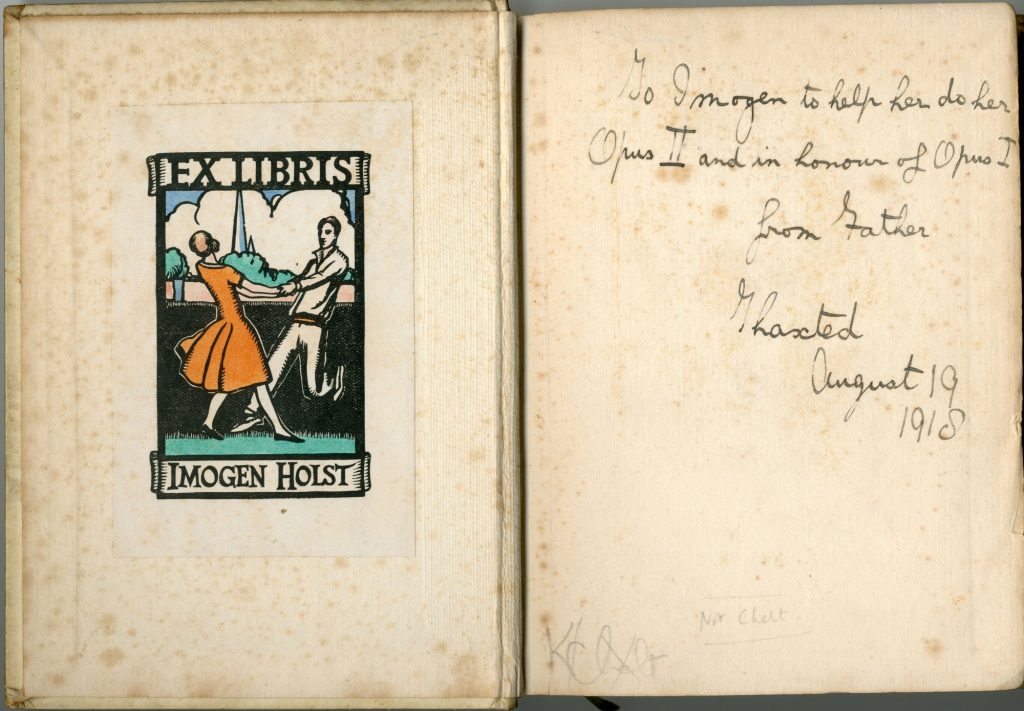 EX LIBRIS
IMOGEN HOLST
To Imogen to help her do her
Opus II and in honour of Opus I
from Father
Thaxted
August 19
1918
Not Chelt.